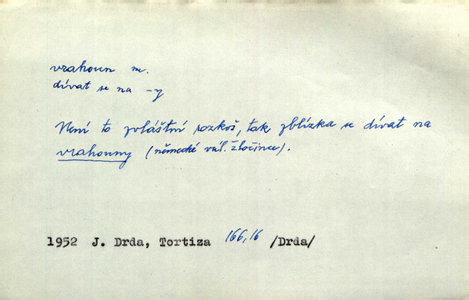 vrahoun m.
dívat se na -y
Není to zvláštní rozkoš, tak zblízka se dívat na
vrahouny (německé vál. zločince).
1952 J. Drda, Tortiza 166,16 /Drda/